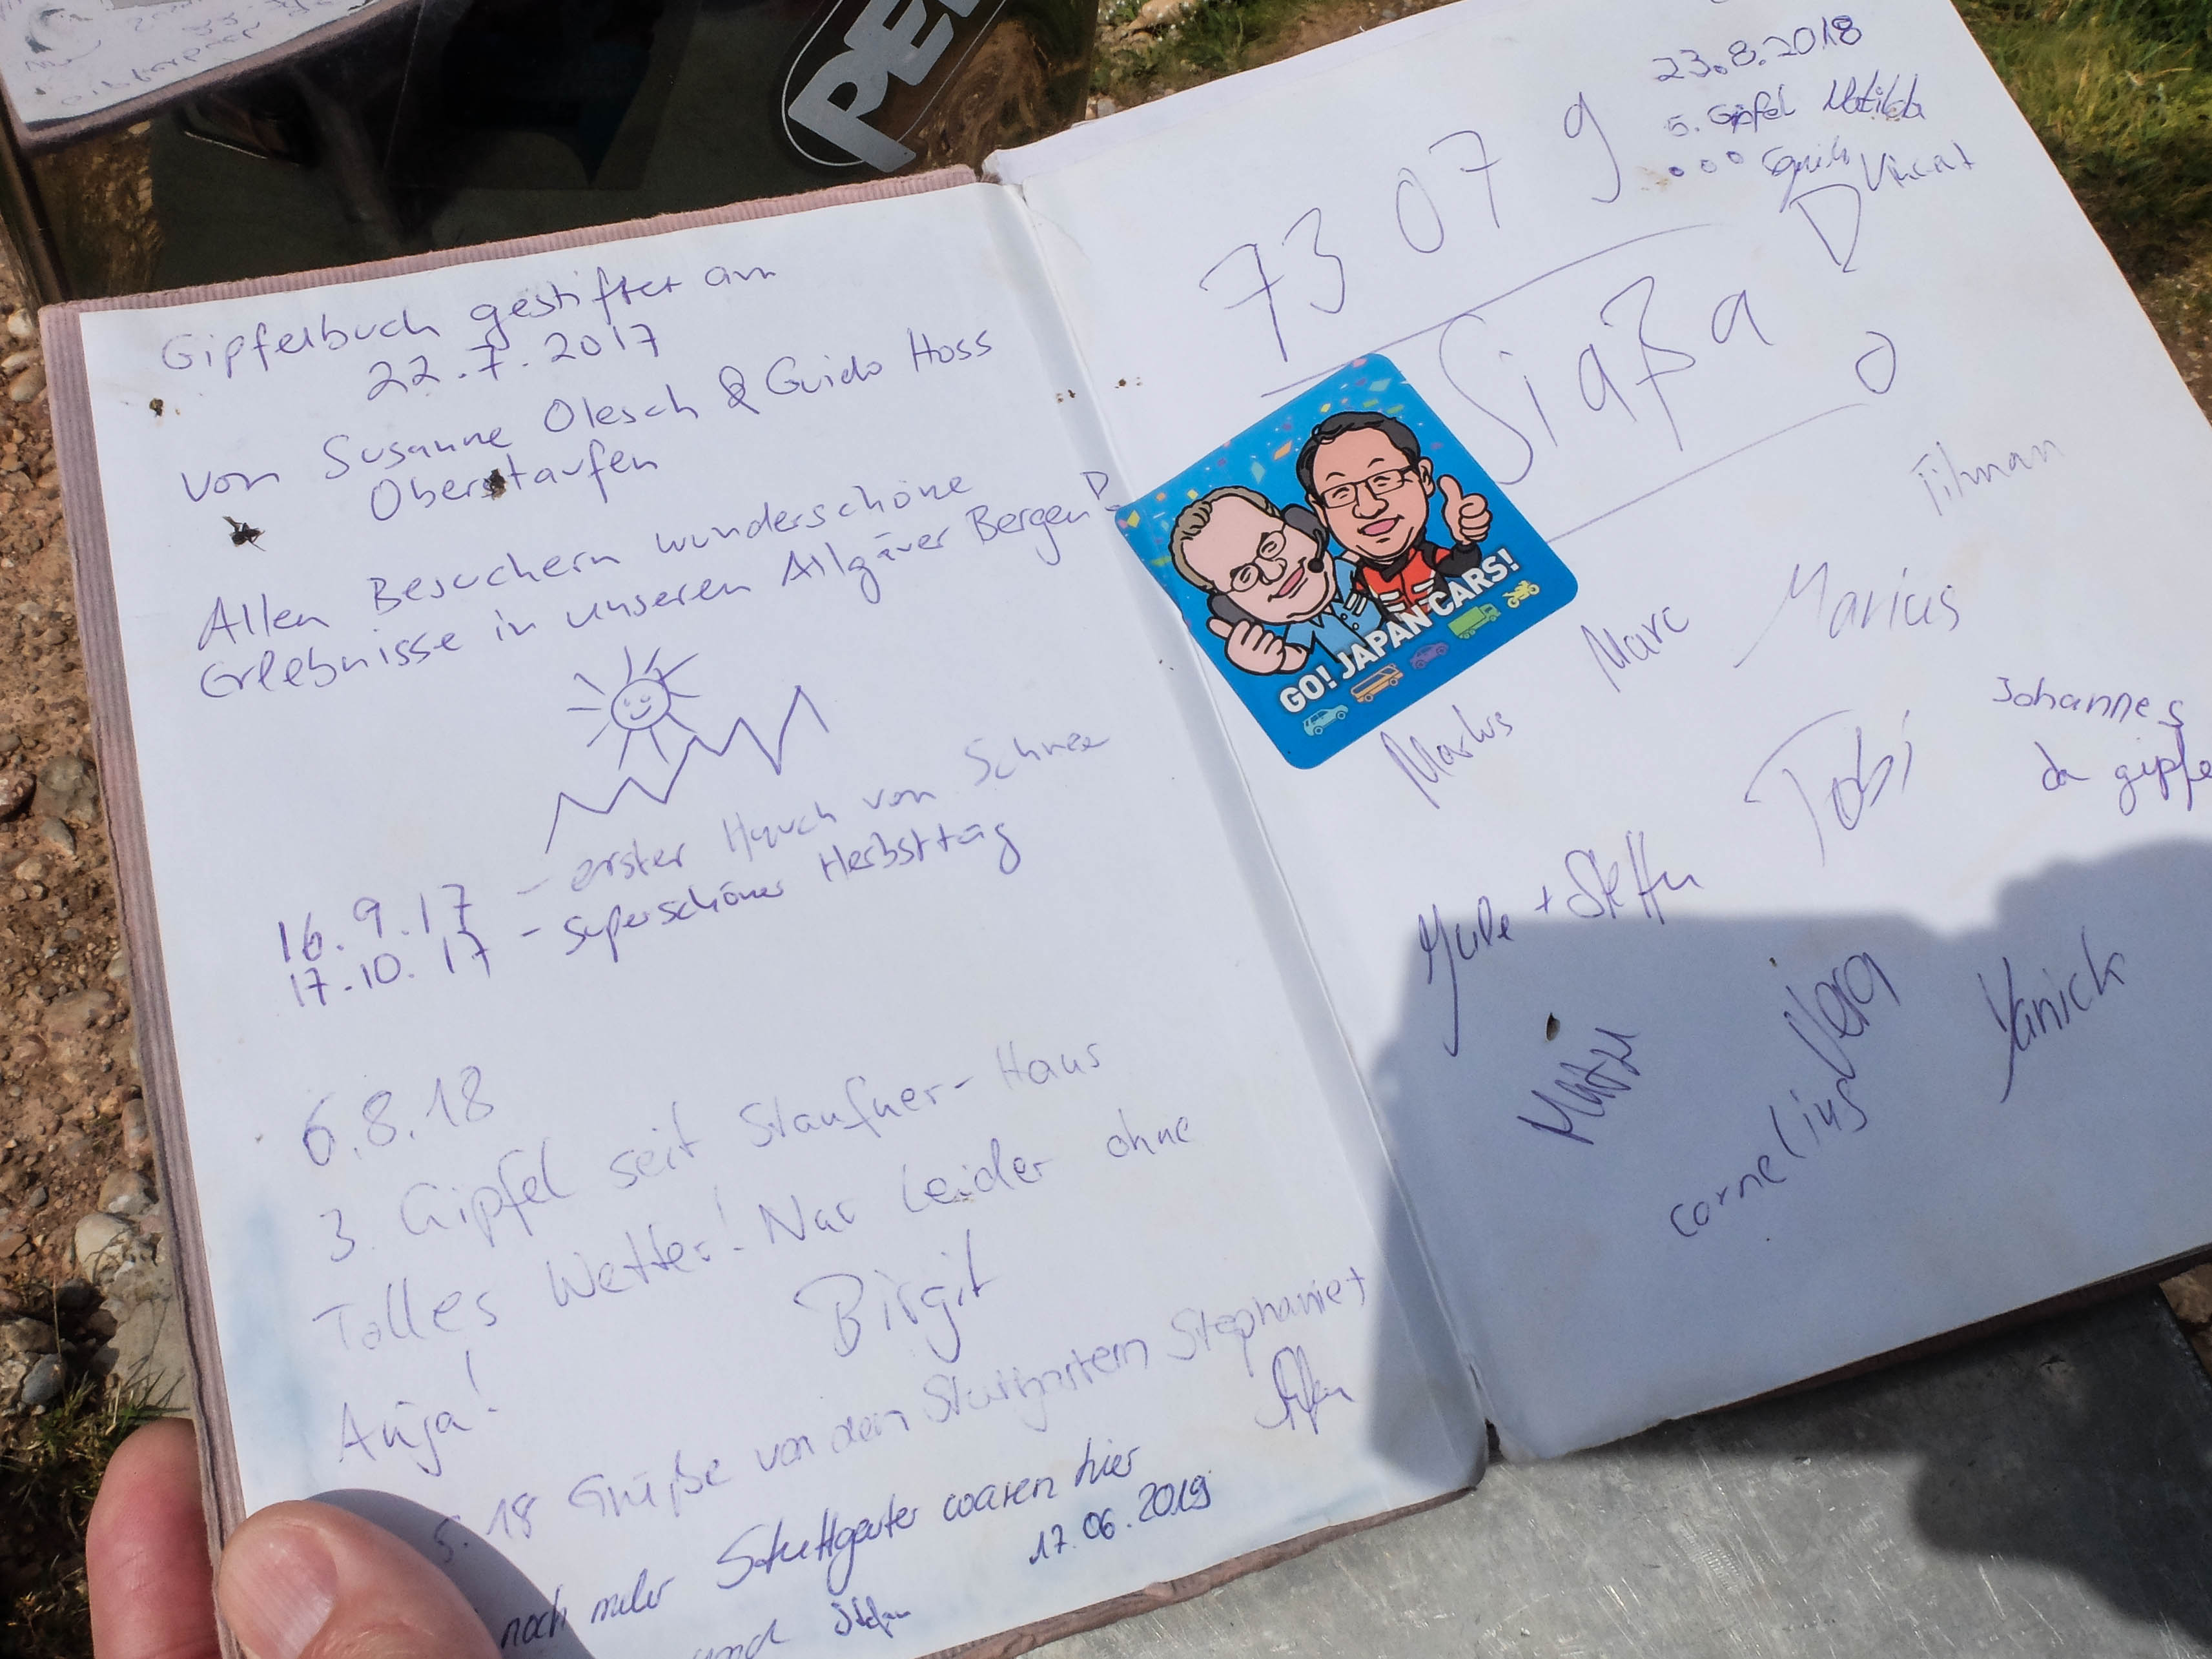 PE
Gipfelbuch gestiftet am
22.7.2017
von Susanne Olesch & Guido Hoss
Oberstaufen
Allen Besuchern wunderschöne
Erlebnisse in unseren Allgäuer Bergen
16.9.17 - erster Hauch von Schnee
17.10.17 - superschöner Herbsttag
6.8.18
3. Gipfel seit Staufner-Haus
Tolles Wetter! Nur leider ohne
Anja!
Birgit
5.18 Grüße von den Stuttgartern Stephanie +
noch mehr Stuttgarter waren hier
17.06.2019
und Stefan
23.8.2018
5. Gipfel Matilda
Vincent
73 07 9
GO! JAPAN CARS!
Tilman
Markus
Marc
Marius
Johannes
Tobi
da gipfe
Jule + Steffen
Vera
Yanick
cornelius